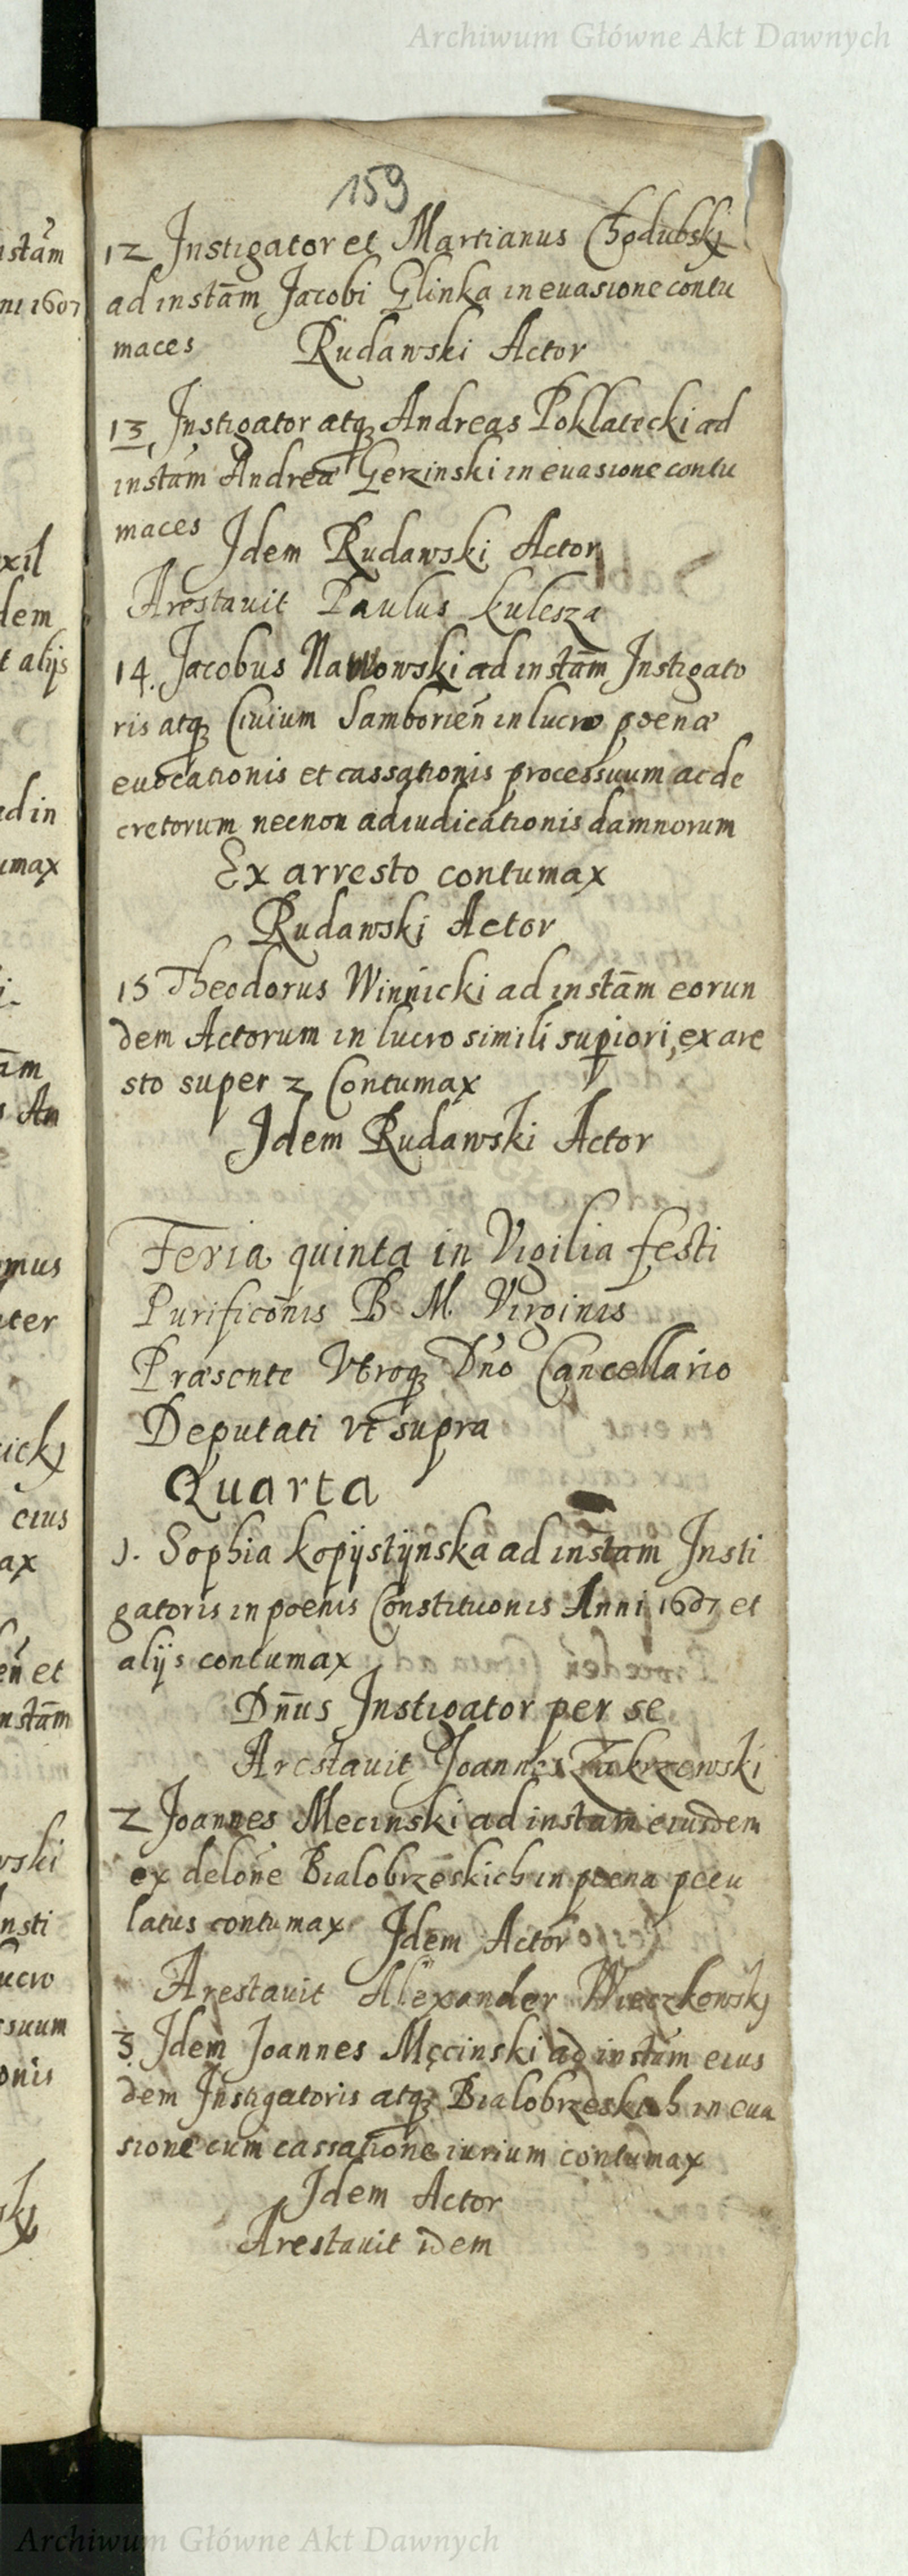 Archiwum Główne Akt Dawnych
159
12 Instigator et Martianus Chodubskj
ad instām Jacobi Glinka in euasione contu
maces Rudawski Actor
13, Instigator atq Andreas Poklatecki ad
instām Andreæ Gerzinski in euasione contu
maces Idem Rudawski Actor
Arestauit Paulus Kulesza
14. Jacobus Nawowski ad instām Instigato
ris atq Ciuium Samborien̄ in lucro poenæ
euocationis et cassationis processuum ac de
cretorum necnon adiudicationis damnorum
Ex arresto contumax
Rudawski Actor
15 Theodorus Winnicki ad instām eorun
dem Actorum in lucro simili supiori, ex are
sto super 2 Contumax
Idem Rudawski Actor
Feria quinta in Vigilia festi
Purificōnis B M Virginis
Præsente Vtroq Dn̄o Cancellario
Deputati vt supra
Quarta
1. Sophia Kopijstijnska ad instam Insti
gatoris in poenis Constituonis Anni 1607 et
alijs contumax
Dn̄us Instigator per se
Arestauit Joannes Zakrzewski
2 Joannes Mecinski ad instam eiusdem
ex delōne Bialobrzeskich in poena pecu
latus contumax Idem Actor
Arestauit Alexander Wieczkowskj
3. Idem Joannes Męcinski ad instām eius
dem Instigatoris atq Bialobrzeskich in eua
sione cum cassatione iurium contumax
Idem Actor
Arestauit idem
Archiwum Główne Akt Dawnych